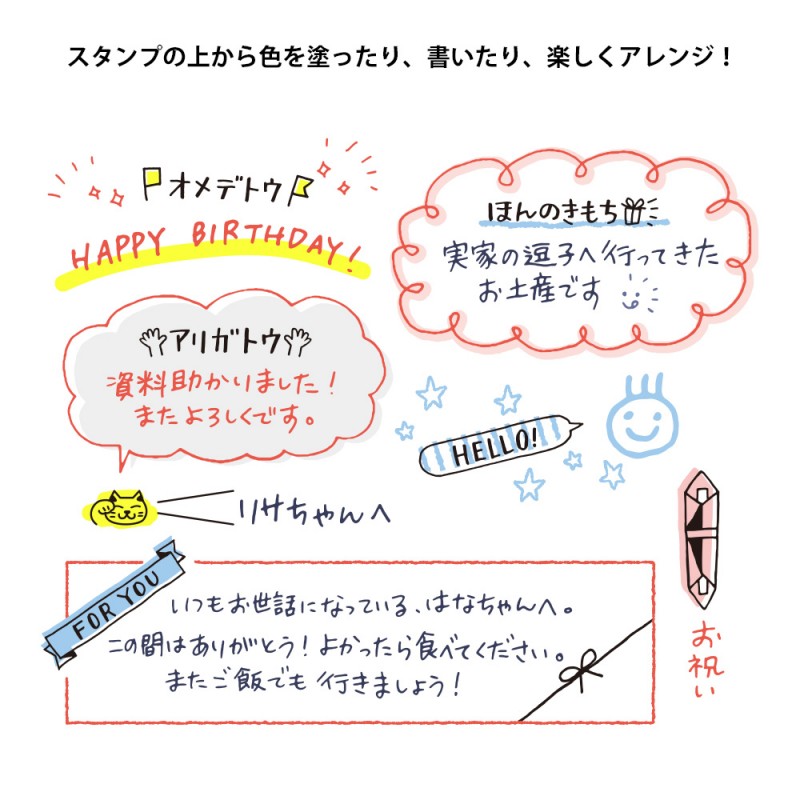 スタンプの上から色を塗ったり、書いたり、楽しくアレンジ！
オメデトウ
HAPPY BIRTHDAY!
ほんのきもち
実家の逗子へ行ってきた
お土産です
アリガトウ
資料助かりました！
またよろしくです。
HELLO!
リサちゃんへ
FOR YOU
いつもお世話になっている、はなちゃんへ。
この間はありがとう！よかったら食べてください。
またご飯でも行きましょう！
お祝い